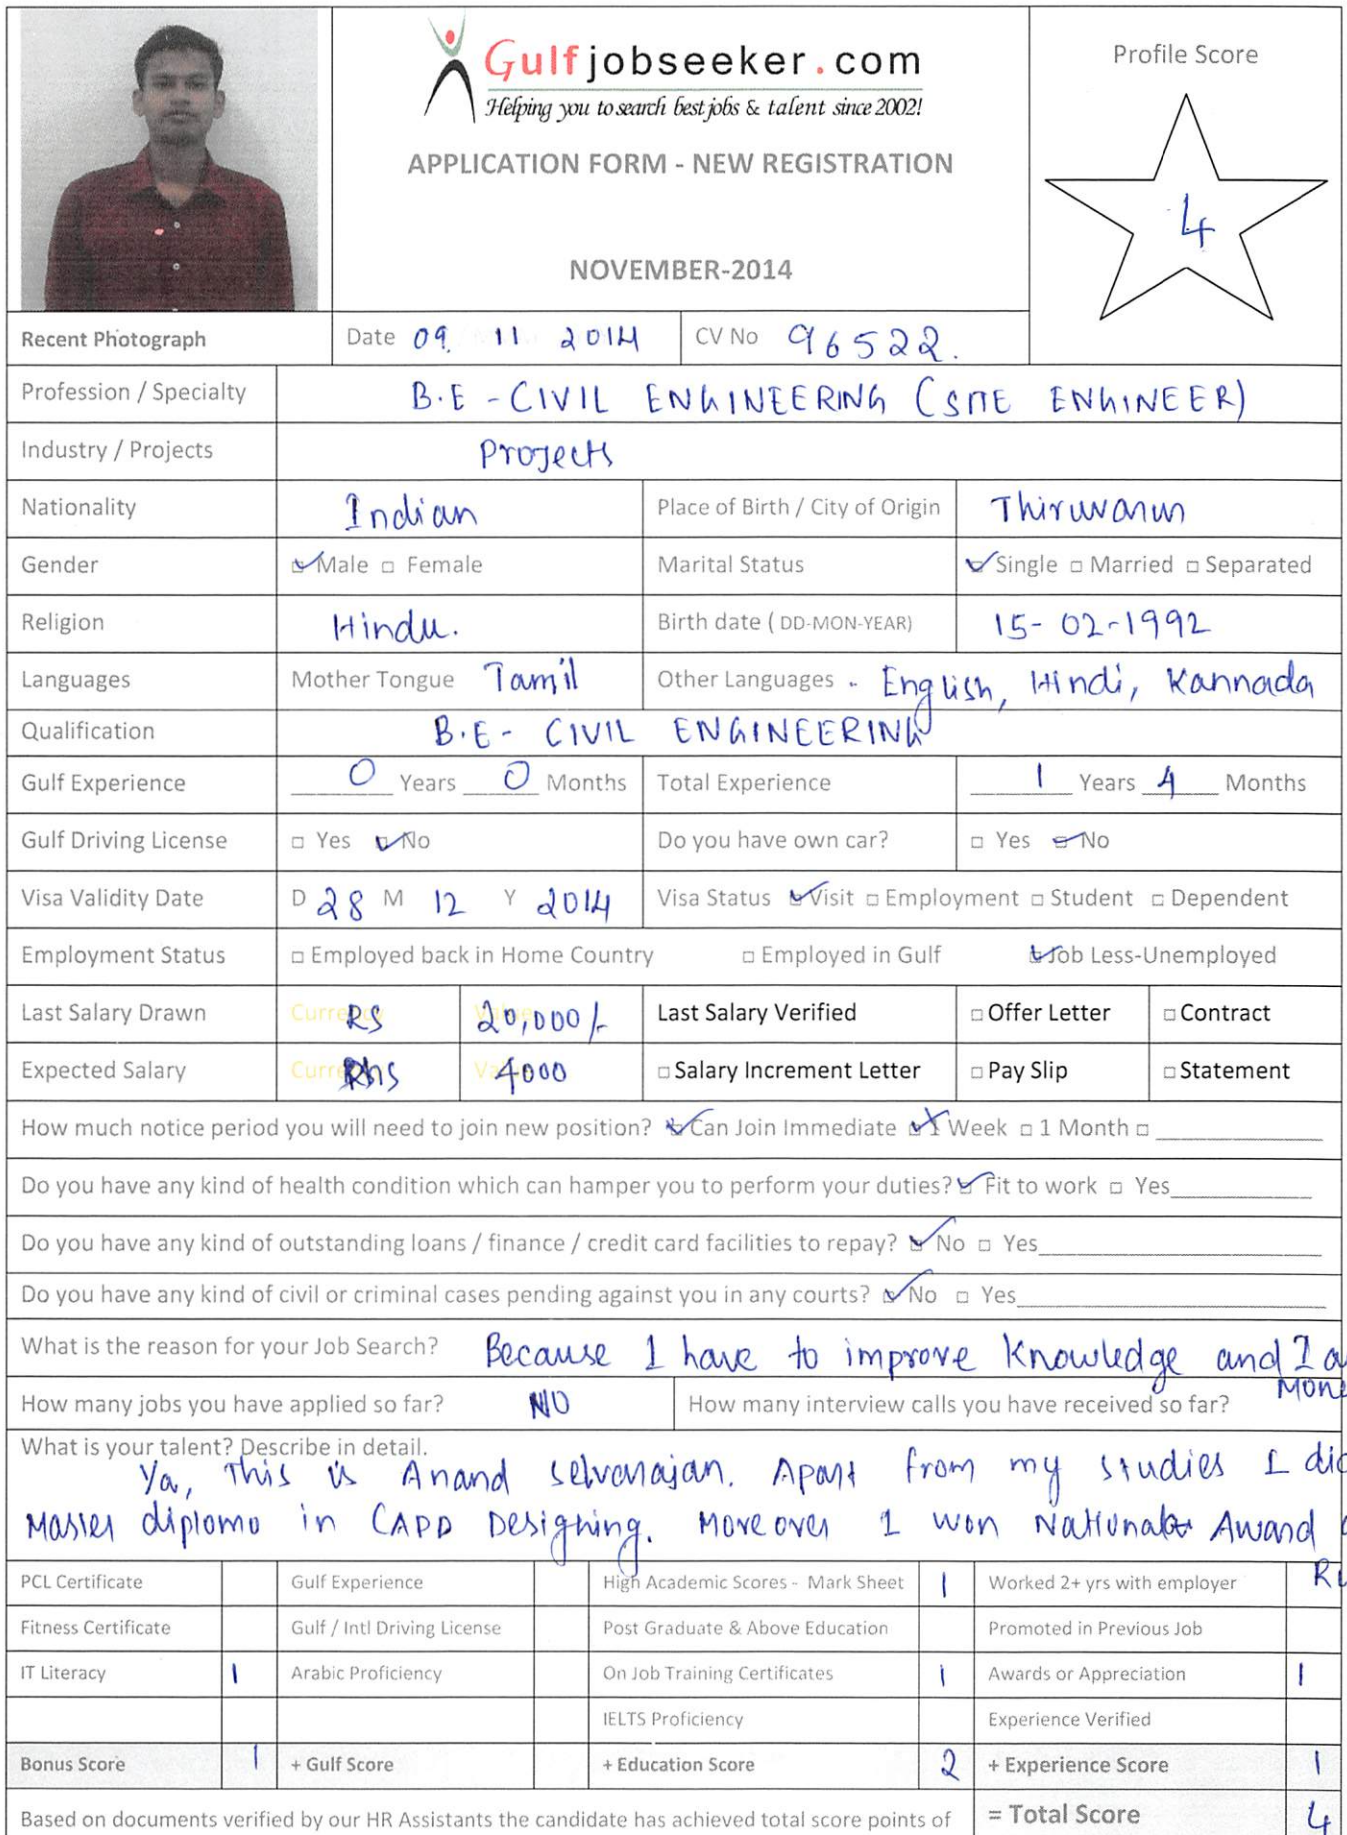 Gulfjobseeker.com
Helping you to search best jobs & talent since 2002!
APPLICATION FORM - NEW REGISTRATION
NOVEMBER-2014
Profile Score
4
Recent Photograph
Date 09. 11 2014
CV No 96522.
Profession / Specialty B.E - CIVIL ENGINEERING (SITE ENGINEER)
Industry / Projects Projects
Nationality Indian
Place of Birth / City of Origin
Gender Male Female
Marital Status Single Married Separated
Religion Hindu.
Birth date ( DD-MON-YEAR) 15-02-1992
Languages Mother Tongue Tamil
Other Languages - English, Hindi, Kannada
Qualification B.E - CIVIL ENGINEERING
Gulf Experience 0 Years 0 Months
Total Experience 1 Years 4 Months
Gulf Driving License Yes No
Do you have own car? Yes No
Visa Validity Date D 28 M 12 Y 2014
Visa Status Visit Employment Student Dependent
Employment Status Employed back in Home Country Employed in Gulf Job Less-Unemployed
Last Salary Drawn RS 20,000/-
Last Salary Verified Offer Letter Contract
Expected Salary 4000
Salary Increment Letter Pay Slip Statement
How much notice period you will need to join new position? Can Join Immediate 1 Week 1 Month
Do you have any kind of health condition which can hamper you to perform your duties? Fit to work Yes
Do you have any kind of outstanding loans / finance / credit card facilities to repay? No Yes
Do you have any kind of civil or criminal cases pending against you in any courts? No Yes
What is the reason for your Job Search? Because I have to improve Knowledge and I
How many jobs you have applied so far? NO
How many interview calls you have received so far?
What is your talent? Describe in detail.
Ya, This is Anand Selvarajan. Apart from my studies I
Master diploma in CADD Designing. Moreover I won National Award
PCL Certificate Gulf Experience High Academic Scores - Mark Sheet 1 Worked 2+ yrs with employer
Fitness Certificate Gulf / Intl Driving License Post Graduate & Above Education Promoted in Previous Job
IT Literacy 1 Arabic Proficiency On Job Training Certificates 1 Awards or Appreciation 1
IELTS Proficiency Experience Verified
Bonus Score 1 + Gulf Score + Education Score 2 + Experience Score 1
Based on documents verified by our HR Assistants the candidate has achieved total score points of = Total Score 4